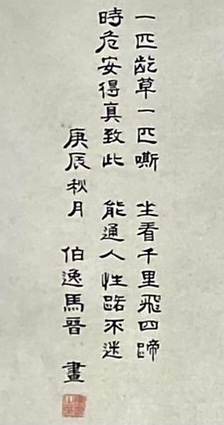 一匹齕草一匹嘶　坐看千里飛四蹄
時危安得真致此　能通人性路不迷
庚辰秋月　伯逸馬晉　畫